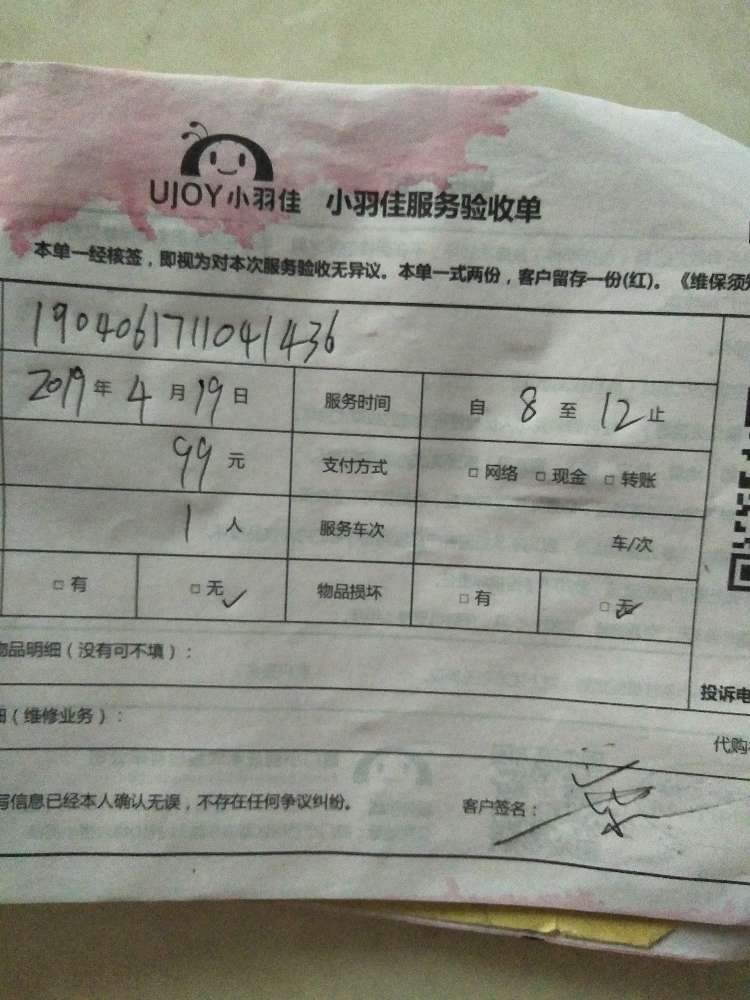 UJOY小羽佳 小羽佳服务验收单
本单一经核签，即视为对本次服务验收无异议。本单一式两份，客户留存一份(红)。《维保须知
1904061711041436
2019年 4月19日 服务时间 自 8 至 12止
99元 支付方式 □网络 □现金 □转账
1人 服务车次 车/次
□有 □无✓ 物品损坏 □有 □无✓
物品明细（没有可不填）：
投诉电
细（维修业务）：
代购
写信息已经本人确认无误，不存在任何争议纠纷。 客户签名：